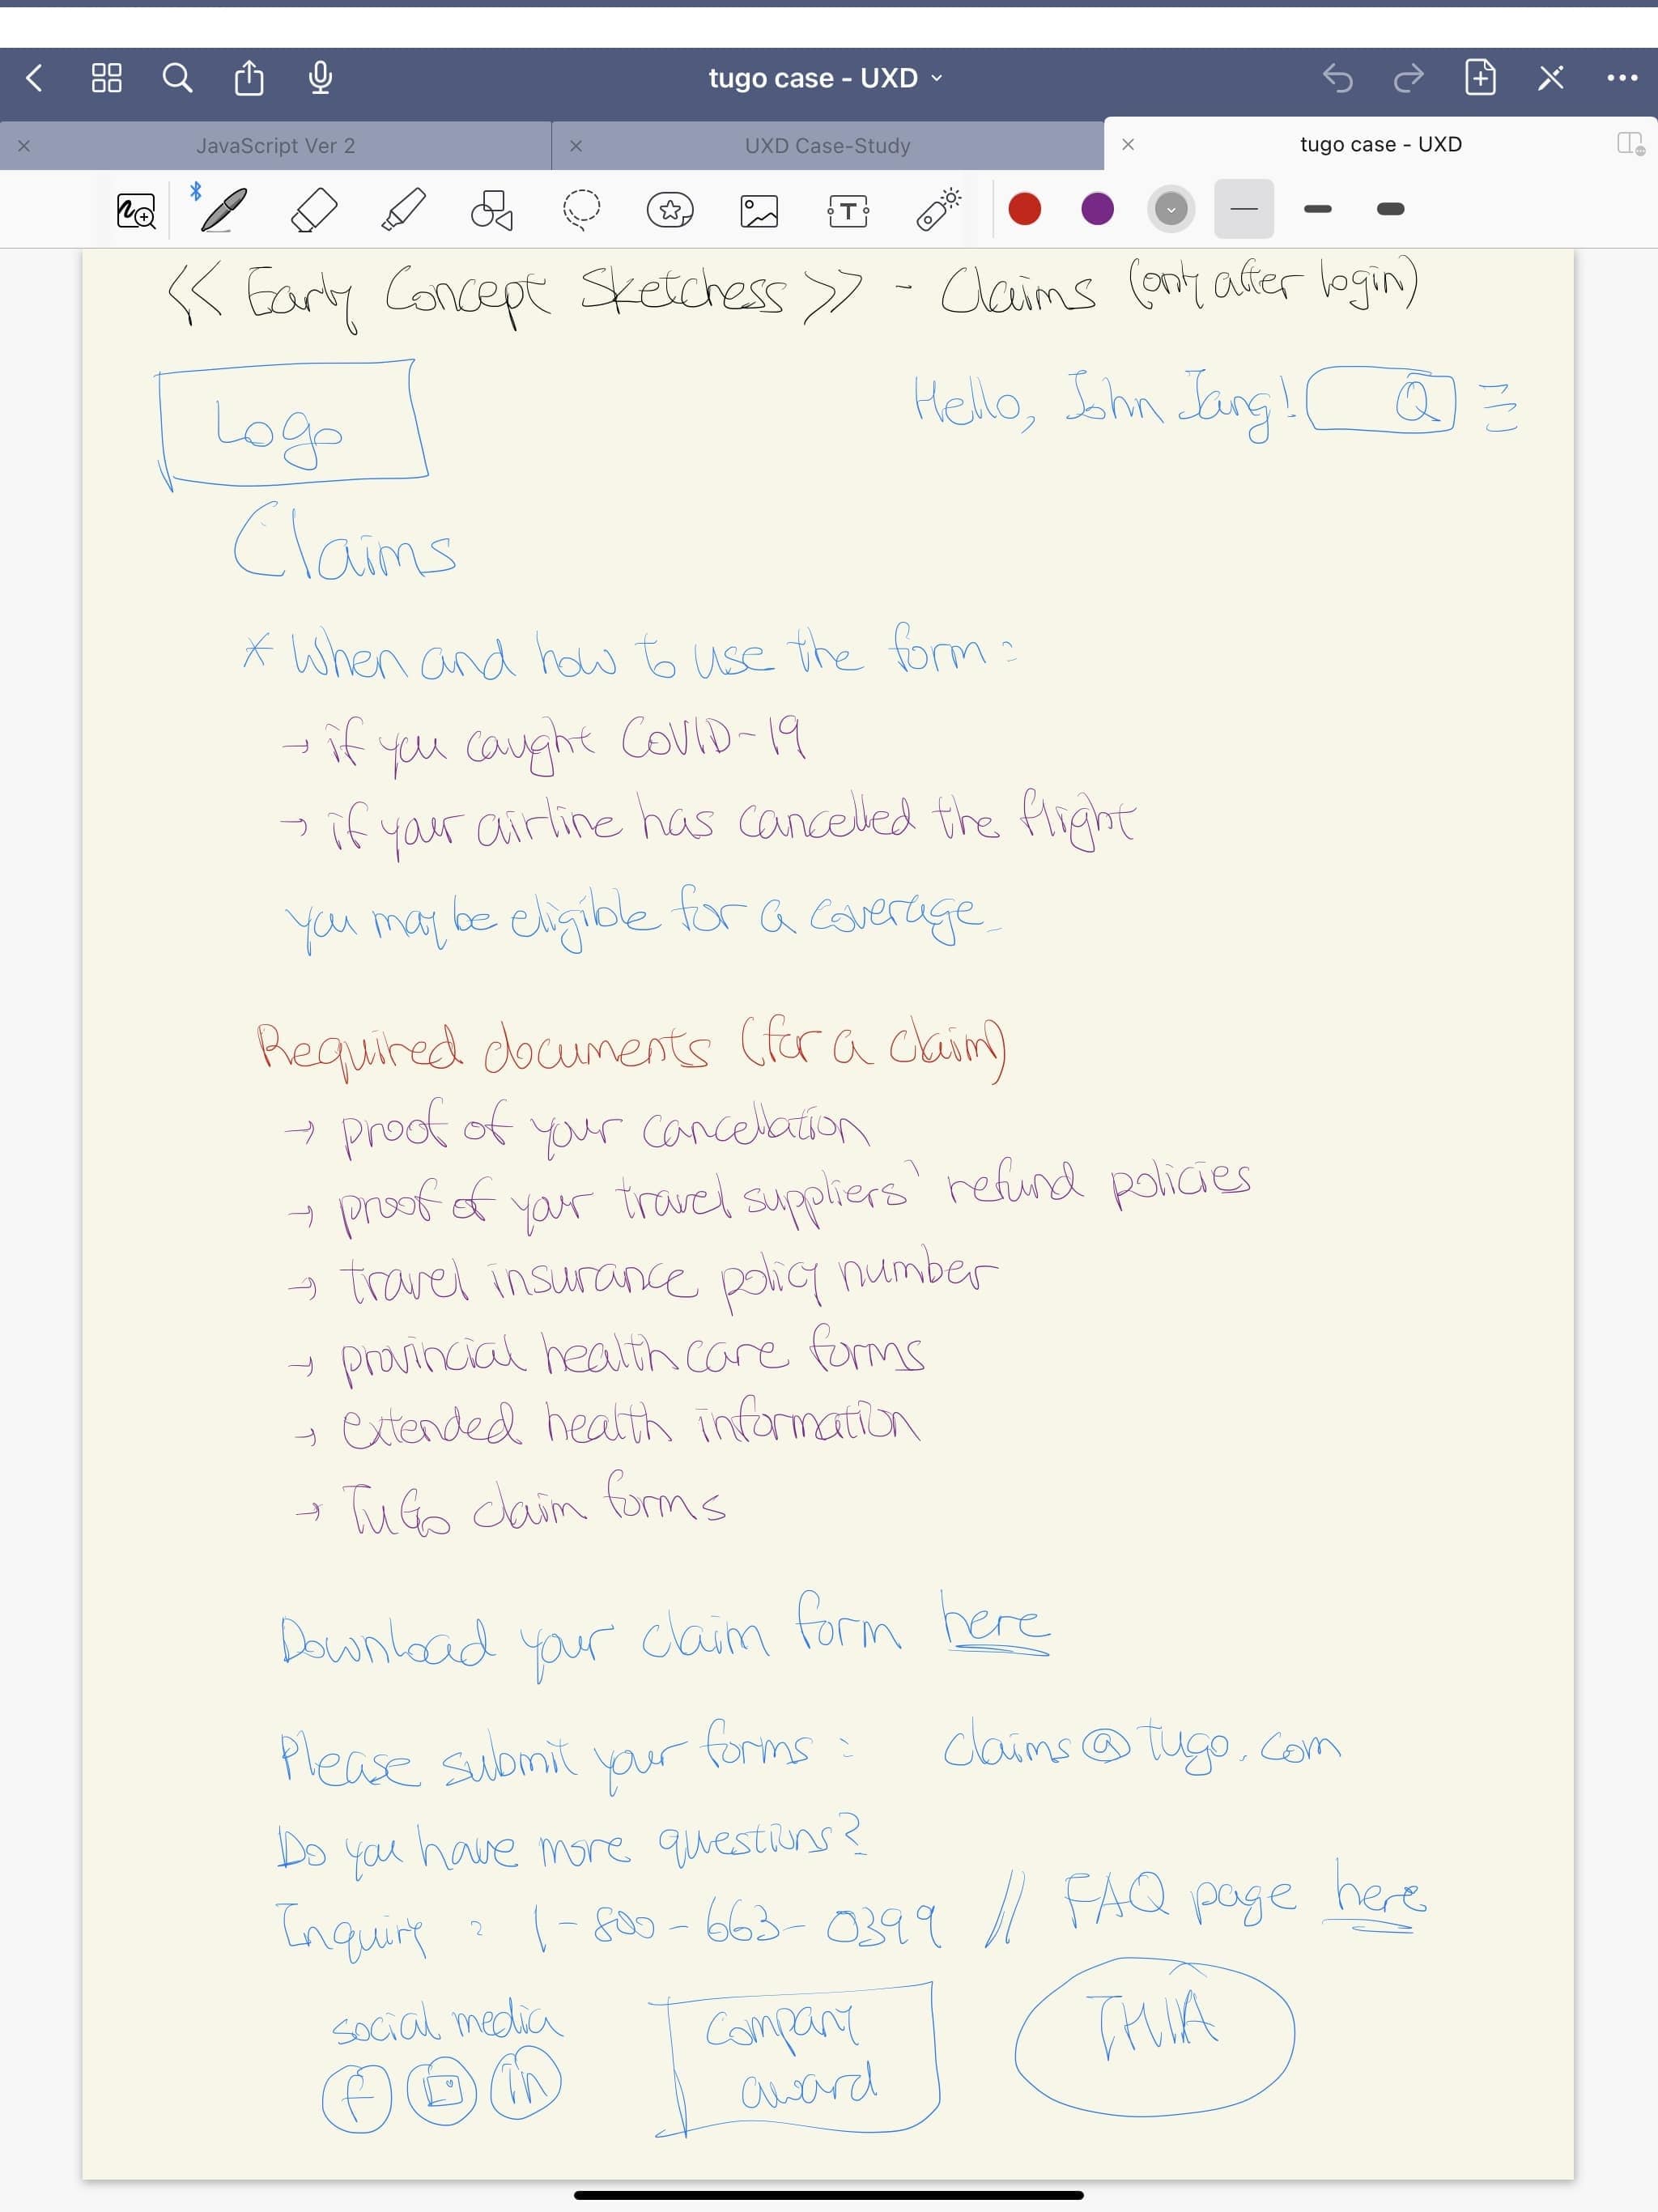 tugo case - UXD
JavaScript Ver 2
UXD Case-Study
tugo case - UXD
T
<< Early Concept Sketchess >> - Claims (only after login)
Logo
Hello, John Jang!
Claims
* When and how to use the form:
→ if you caught COVID-19
→ if your airline has cancelled the flight
you may be eligible for a coverage.
Required documents (for a claim)
→ proof of your cancellation
→ proof of your travel suppliers' refund policies
→ travel insurance policy number
→ provincial healthcare forms
→ extended health information
→ TuGo claim forms
Download your claim form here
Please submit your forms: claims@tugo.com
Do you have more questions?
Inquiry: 1-800-663-0399 // FAQ page here
social media
f in
Company
award
THIA